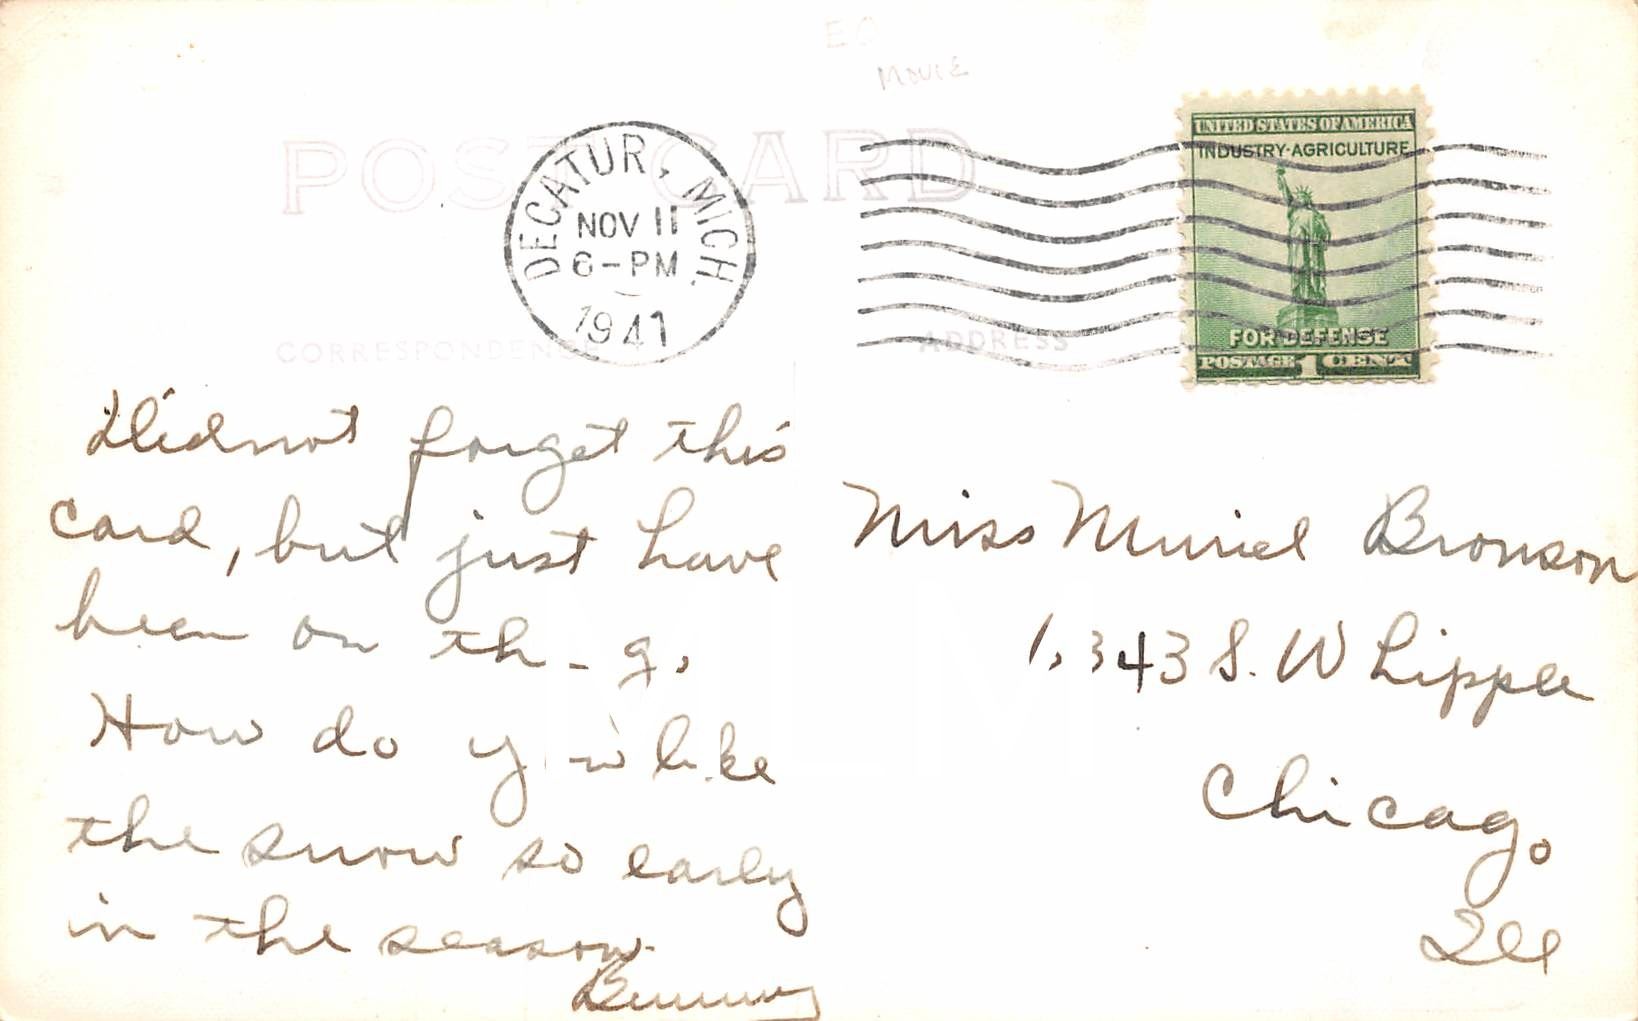 MOVIE
POST CARD
DECATUR, MICH.
NOV 11
6-PM
1941
UNITED STATES OF AMERICA
INDUSTRY·AGRICULTURE
FOR DEFENSE
POSTAGE 1 CENT
CORRESPONDENCE
ADDRESS
Did not forget this
card, but just have
been on th_ g,
How do you like
the snow so early
in the season.
Bunny
Miss Muriel Bronson
1,343 S. Whipple
Chicago
Ill
MLM